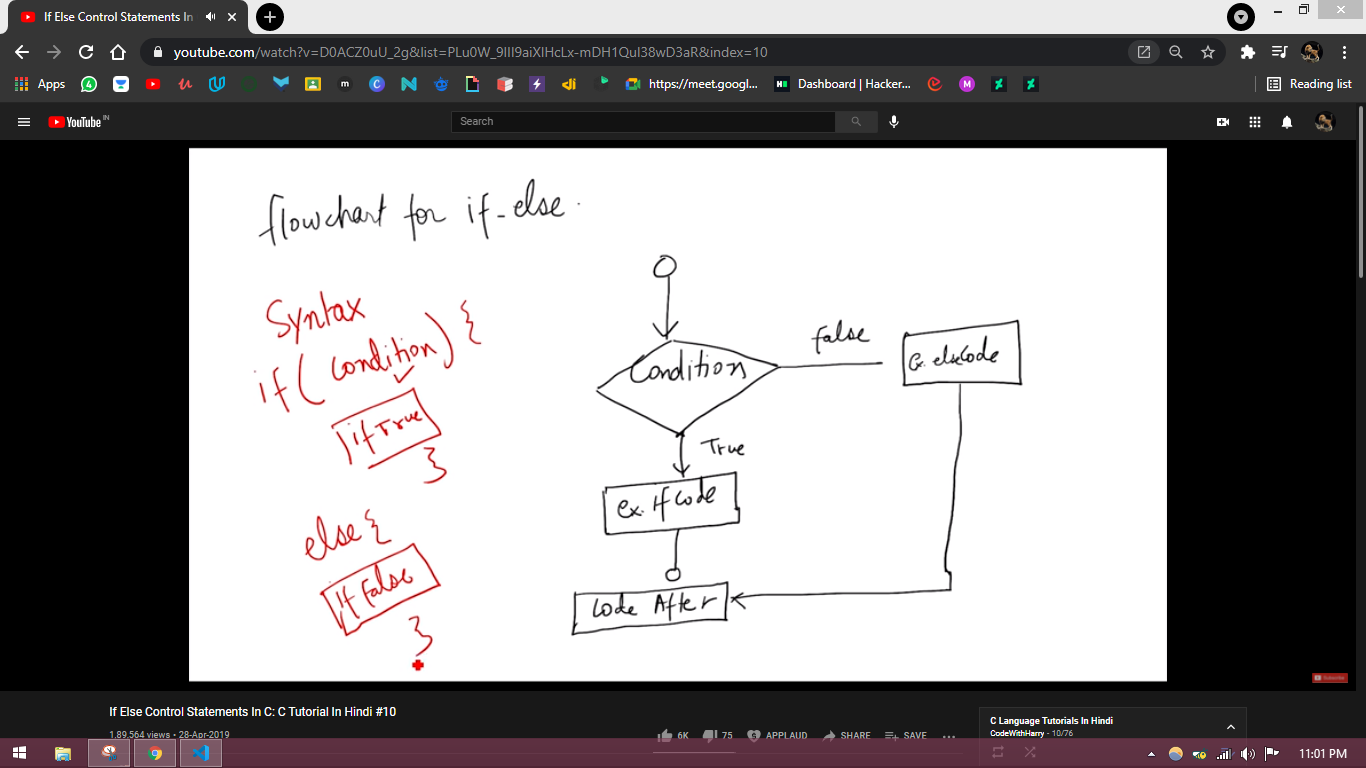 If Else Control Statements In
youtube.com/watch?v=D0ACZ0uU_2g&list=PLu0W_9lII9aiXlHcLx-mDH1Qul38wD3aR&index=10
Apps
https://meet.googl...
Dashboard | Hacker...
Reading list
YouTube IN
Search
flowchart for if-else.
Syntax
if ( condition ) {
if True
}
else {
if False
}
Condition
False
Ex. else Code
True
ex. If Code
Code After
Subscribe
If Else Control Statements In C: C Tutorial In Hindi #10
1,89,564 views • 28-Apr-2019
6K
75
APPLAUD
SHARE
SAVE
C Language Tutorials In Hindi
CodeWithHarry - 10/76
11:01 PM